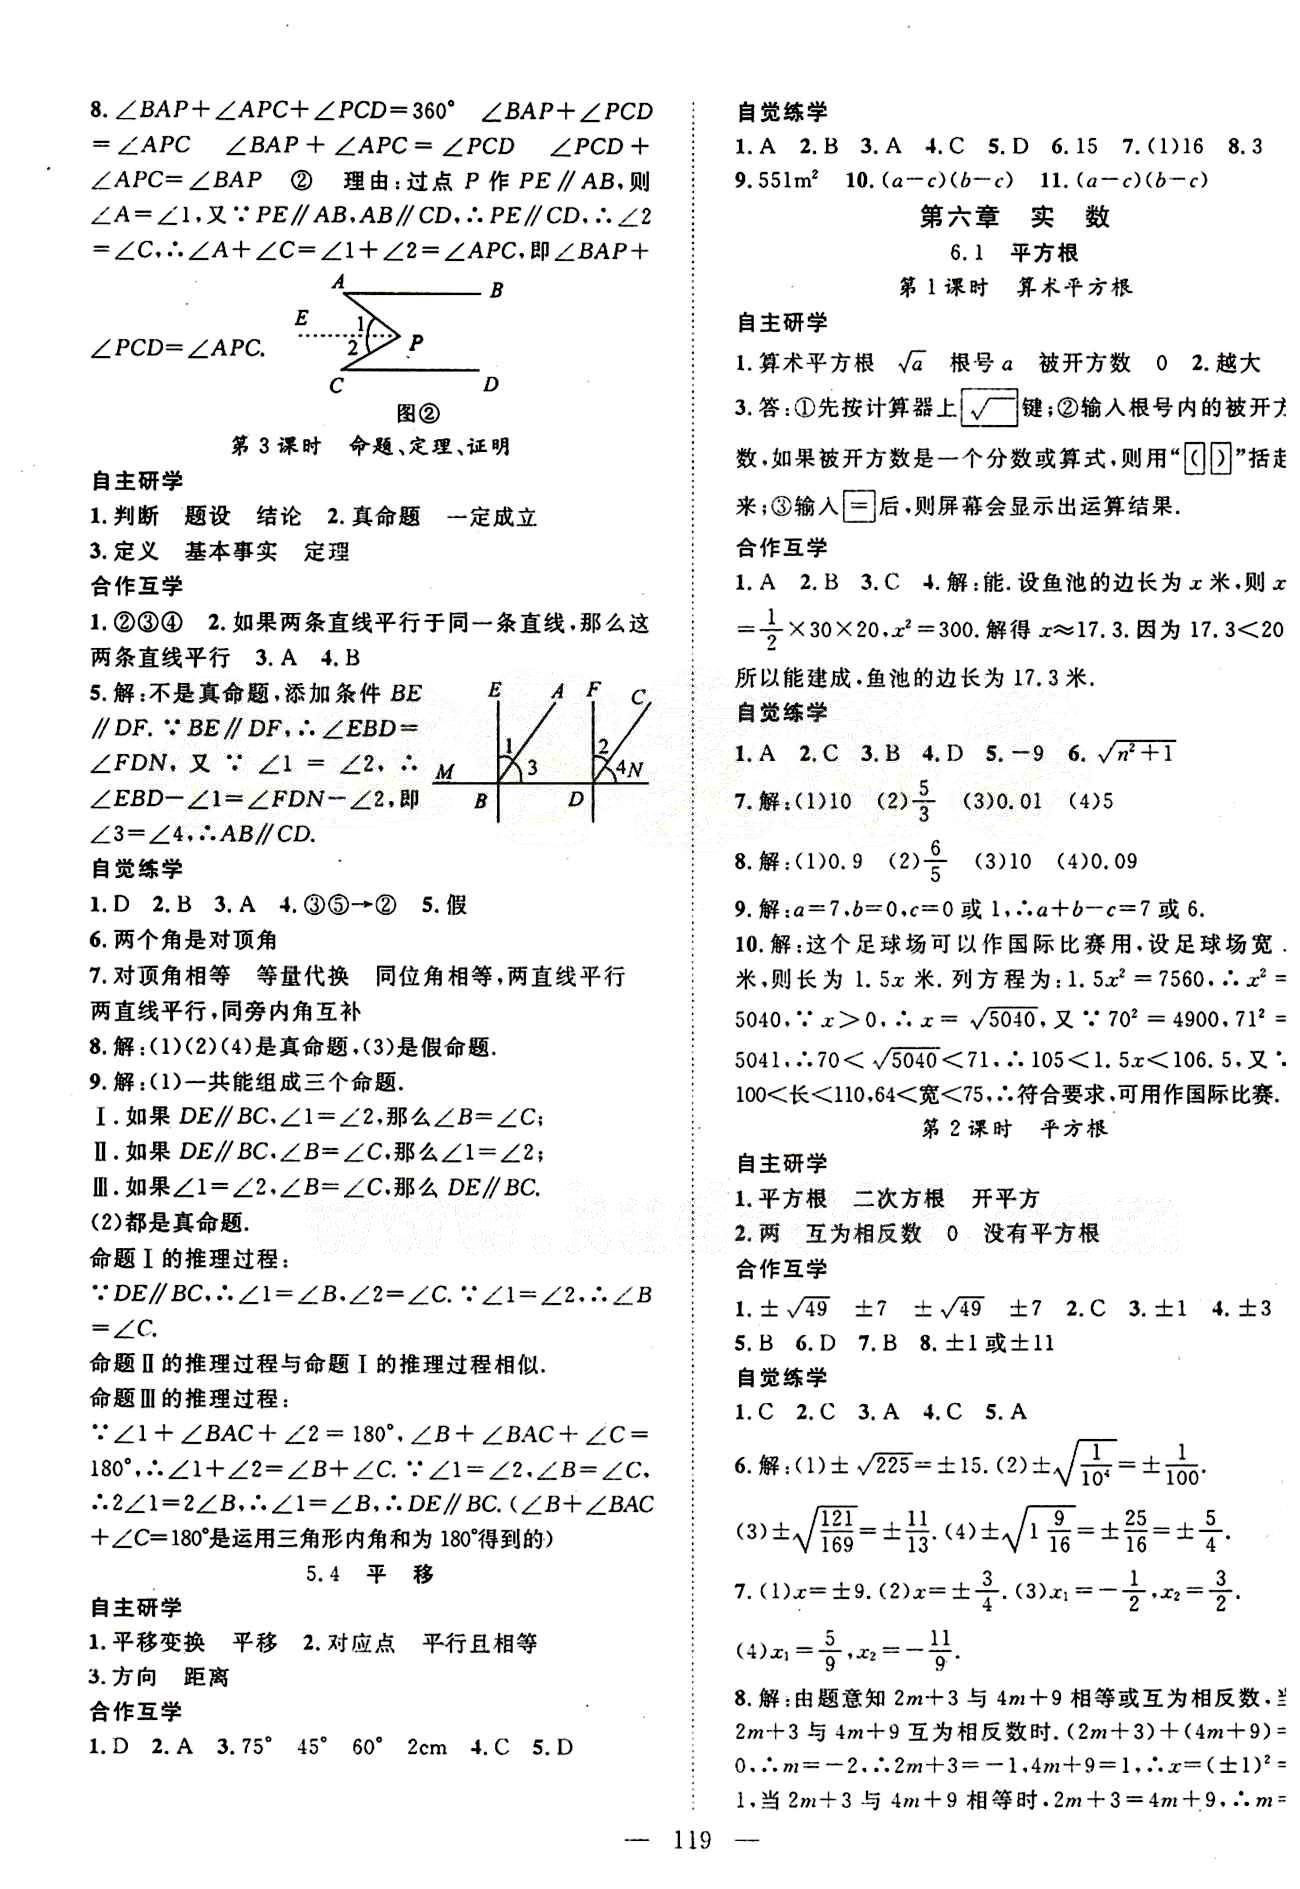 8.∠BAP+∠APC+∠PCD=360° ∠BAP+∠PCD
=∠APC ∠BAP+∠APC=∠PCD ∠PCD+
∠APC=∠BAP ② 理由:过点 P 作 PE∥AB,则
∠A=∠1,又∵PE∥AB,AB∥CD,∴PE∥CD,∴∠2
=∠C,∴∠A+∠C=∠1+∠2=∠APC,即∠BAP+
∠PCD=∠APC.
A
B
E
1
2
P
C
D
图②
第 3 课时 命题、定理、证明
自主研学
1.判断 题设 结论 2.真命题 一定成立
3.定义 基本事实 定理
合作互学
1.②③④ 2.如果两条直线平行于同一条直线,那么这
两条直线平行 3.A 4.B
5.解:不是真命题,添加条件 BE
∥DF.∵BE∥DF,∴∠EBD=
∠FDN,又∵∠1=∠2,∴
∠EBD-∠1=∠FDN-∠2,即
∠3=∠4,∴AB∥CD.
E A F C
1 2
M 3 4 N
B D
自觉练学
1.D 2.B 3.A 4.③⑤→② 5.假
6.两个角是对顶角
7.对顶角相等 等量代换 同位角相等,两直线平行
两直线平行,同旁内角互补
8.解:(1)(2)(4)是真命题,(3)是假命题.
9.解:(1)一共能组成三个命题.
Ⅰ.如果 DE∥BC,∠1=∠2,那么∠B=∠C;
Ⅱ.如果 DE∥BC,∠B=∠C,那么∠1=∠2;
Ⅲ.如果∠1=∠2,∠B=∠C,那么 DE∥BC.
(2)都是真命题.
命题Ⅰ的推理过程:
∵DE∥BC,∴∠1=∠B,∠2=∠C.∵∠1=∠2,∴∠B
=∠C.
命题Ⅱ的推理过程与命题Ⅰ的推理过程相似.
命题Ⅲ的推理过程:
∵∠1+∠BAC+∠2=180°,∠B+∠BAC+∠C=
180°,∴∠1+∠2=∠B+∠C.∵∠1=∠2,∠B=∠C,
∴2∠1=2∠B,∴∠1=∠B,∴DE∥BC.(∠B+∠BAC
+∠C=180°是运用三角形内角和为180°得到的)
5.4 平 移
自主研学
1.平移变换 平移 2.对应点 平行且相等
3.方向 距离
合作互学
1.D 2.A 3.75° 45° 60° 2cm 4.C 5.D
自觉练学
1.A 2.B 3.A 4.C 5.D 6.15 7.(1)16 8.3
9.551m² 10.(a-c)(b-c) 11.(a-c)(b-c)
第六章 实 数
6.1 平方根
第 1 课时 算术平方根
自主研学
1.算术平方根 √a 根号 a 被开方数 0 2.越大
3.答:①先按计算器上√键;②输入根号内的被开方
数,如果被开方数是一个分数或算式,则用“( )”括起
来;③输入=后,则屏幕会显示出运算结果.
合作互学
1.A 2.B 3.C 4.解:能.设鱼池的边长为 x 米,则 x
=1/2×30×20,x²=300.解得 x≈17.3.因为 17.3<20
所以能建成,鱼池的边长为 17.3 米.
自觉练学
1.A 2.C 3.B 4.D 5.-9 6.√(n²+1)
7.解:(1)10 (2)5/3 (3)0.01 (4)5
8.解:(1)0.9 (2)6/5 (3)10 (4)0.09
9.解:a=7,b=0,c=0 或 1,∴a+b-c=7 或 6.
10.解:这个足球场可以作国际比赛用,设足球场宽
米,则长为 1.5x 米.列方程为:1.5x²=7560,∴x²=
5040,∵x>0,∴x=√5040,又∵70²=4900,71²=
5041,∴70<√5040<71,∴105<1.5x<106.5,又∵
100<长<110,64<宽<75,∴符合要求,可用作国际比赛.
第 2 课时 平方根
自主研学
1.平方根 二次方根 开平方
2.两 互为相反数 0 没有平方根
合作互学
1.±√49 ±7 ±√49 ±7 2.C 3.±1 4.±3
5.B 6.D 7.B 8.±1或±11
自觉练学
1.C 2.C 3.A 4.C 5.A
6.解:(1)±√225=±15.(2)±√(1/10⁴)=±1/100.
(3)±√(121/169)=±11/13.(4)±√(1 9/16)=±25/16=±5/4.
7.(1)x=±9.(2)x=±3/4.(3)x₁=-1/2,x₂=3/2.
(4)x₁=5/9,x₂=-11/9.
8.解:由题意知 2m+3 与 4m+9 相等或互为相反数,
2m+3 与 4m+9 互为相反数时.(2m+3)+(4m+9)=
0,∴m=-2,∴2m+3=-1,4m+9=1,∴x=(±1)²=
1,当 2m+3 与 4m+9 相等时,2m+3=4m+9,∴m=
— 119 —